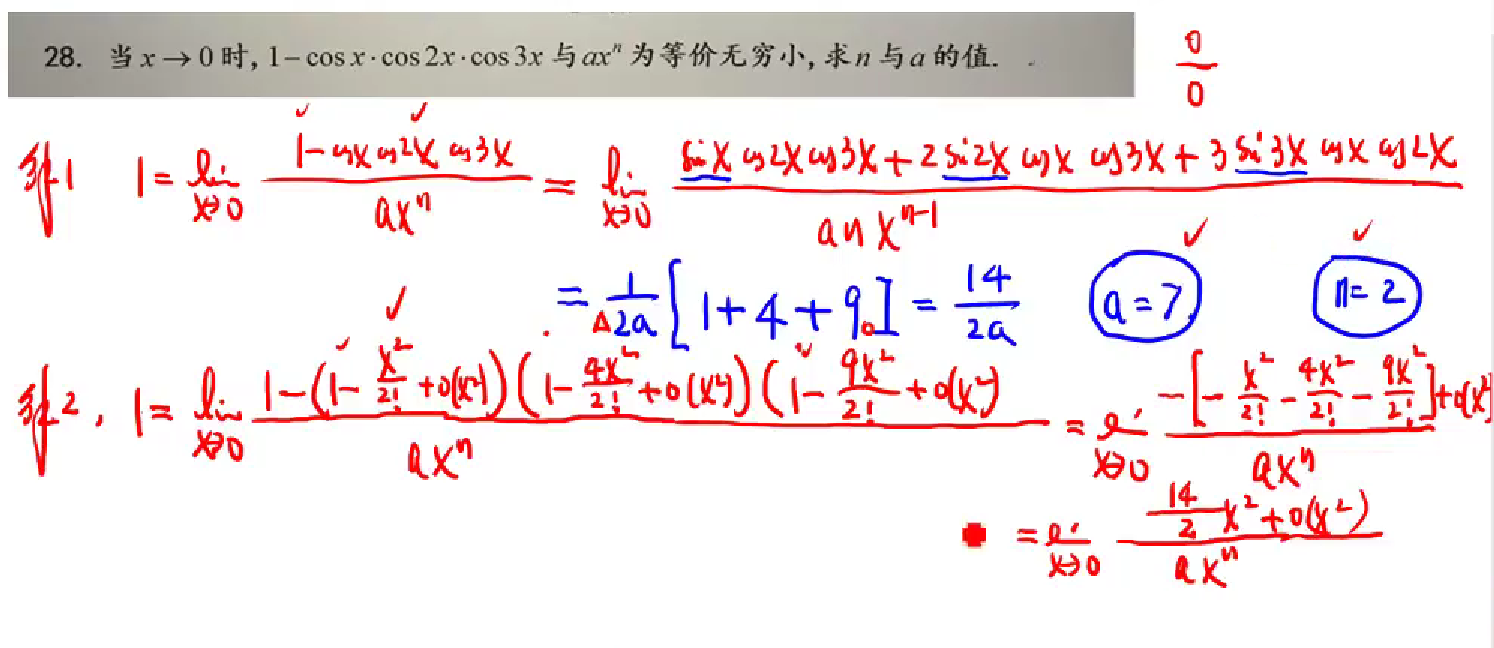 28. 当 x → 0 时, 1 − cos x · cos 2x · cos 3x 与 axⁿ 为等价无穷小, 求 n 与 a 的值.
0/0
1 = lim_{x→0} (1 − cos x cos 2x cos 3x)/(axⁿ) = lim_{x→0} (sin x cos 2x cos 3x + 2 sin 2x cos x cos 3x + 3 sin 3x cos x cos 2x)/(an xⁿ⁻¹)
= 1/(2a) [1 + 4 + 9] = 14/(2a) a = 7 n = 2
2, 1 = lim_{x→0} (1 − (1 − x²/2! + o(x²))(1 − 4x²/2! + o(x²))(1 − 9x²/2! + o(x²)))/(axⁿ) = lim_{x→0} (−[−x²/2! − 4x²/2! − 9x²/2!] + o(x²))/(axⁿ)
= lim_{x→0} (14/2 x² + o(x²))/(axⁿ)